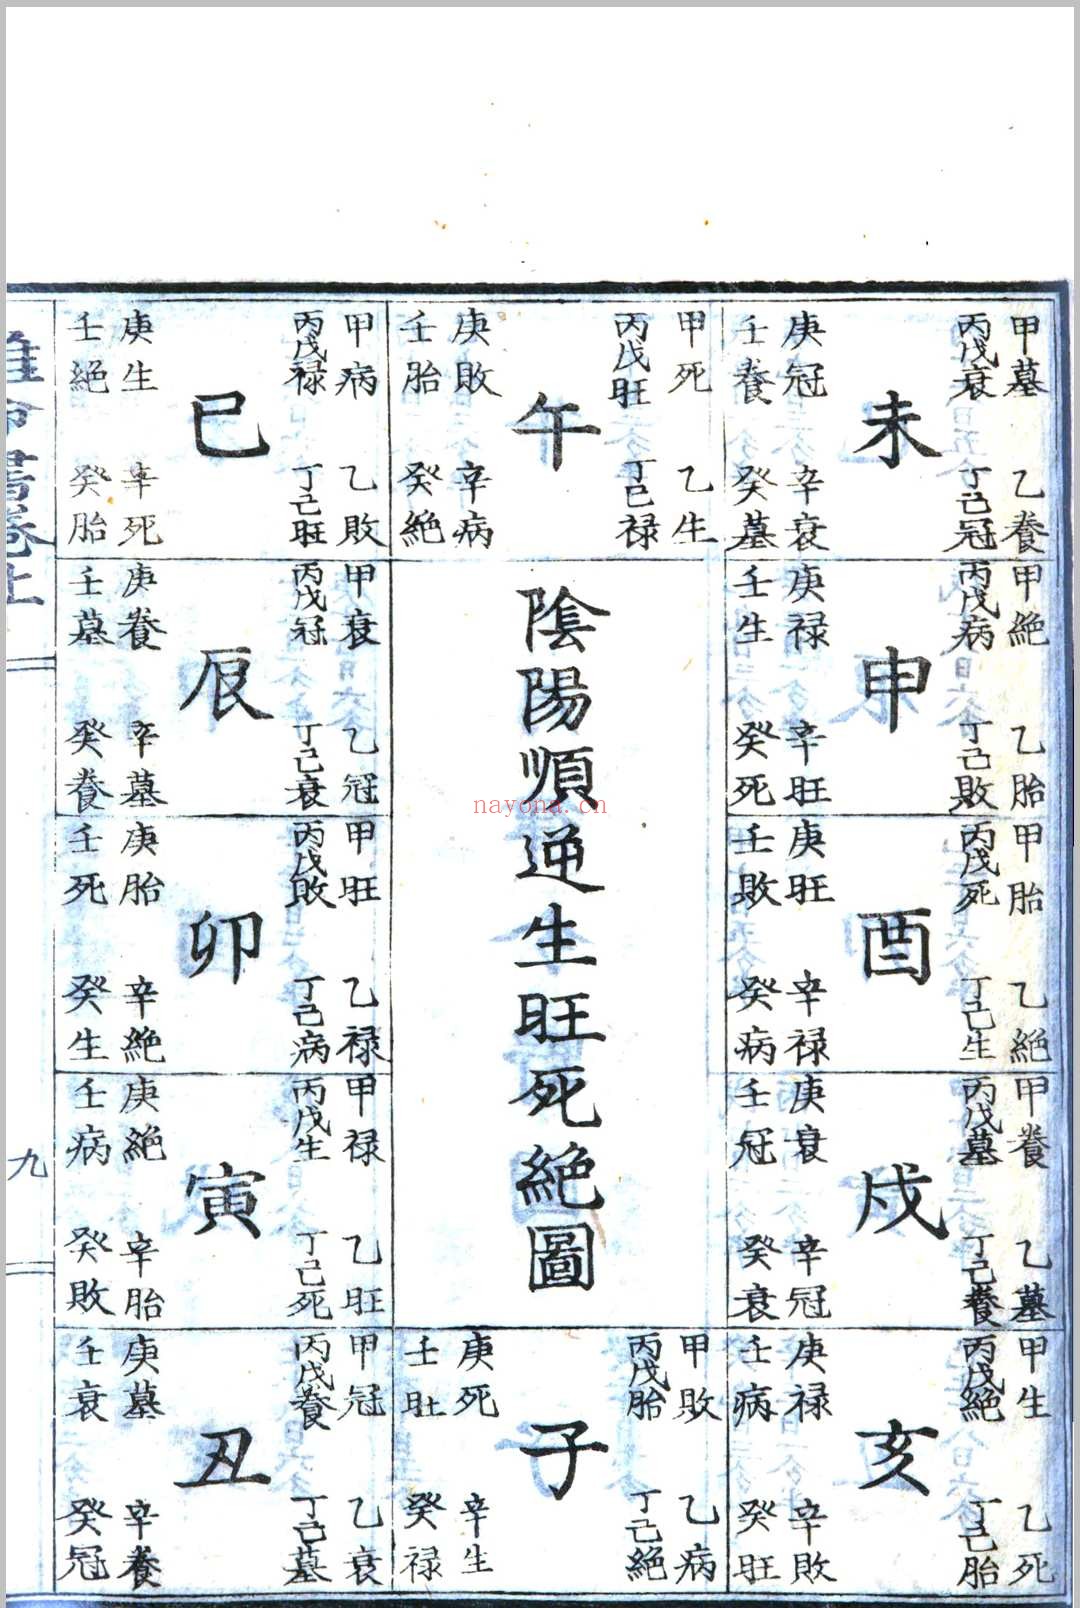 陰陽順逆生旺死絕圖
未
甲墓
丙戊衰
庚冠
壬養
乙養
丁己冠
辛衰
癸墓
午
甲死
丙戊旺
庚敗
壬胎
乙生
丁己禄
辛病
癸絕
巳
甲病
丙戊禄
庚生
壬絕
乙敗
丁己旺
辛死
癸胎
申
甲絕
丙戊病
庚禄
壬生
乙胎
丁己敗
辛旺
癸死
辰
甲衰
丙戊冠
庚養
壬墓
乙冠
丁己衰
辛墓
癸養
酉
甲胎
丙戊死
庚旺
壬敗
乙絕
丁己生
辛禄
癸病
卯
甲旺
丙戊敗
庚胎
壬死
乙禄
丁己病
辛絕
癸生
戌
甲養
丙戊墓
庚衰
壬冠
乙墓
丁己養
辛冠
癸衰
寅
甲禄
丙戊生
庚絕
壬病
乙旺
丁己死
辛胎
癸敗
亥
甲生
丙戊絕
庚禄
壬病
乙死
丁己胎
辛敗
癸旺
子
甲敗
丙戊胎
庚死
壬旺
乙病
丁己絕
辛生
癸禄
丑
甲冠
丙戊養
庚墓
壬衰
乙衰
丁己墓
辛養
癸冠
九
nayona.cn